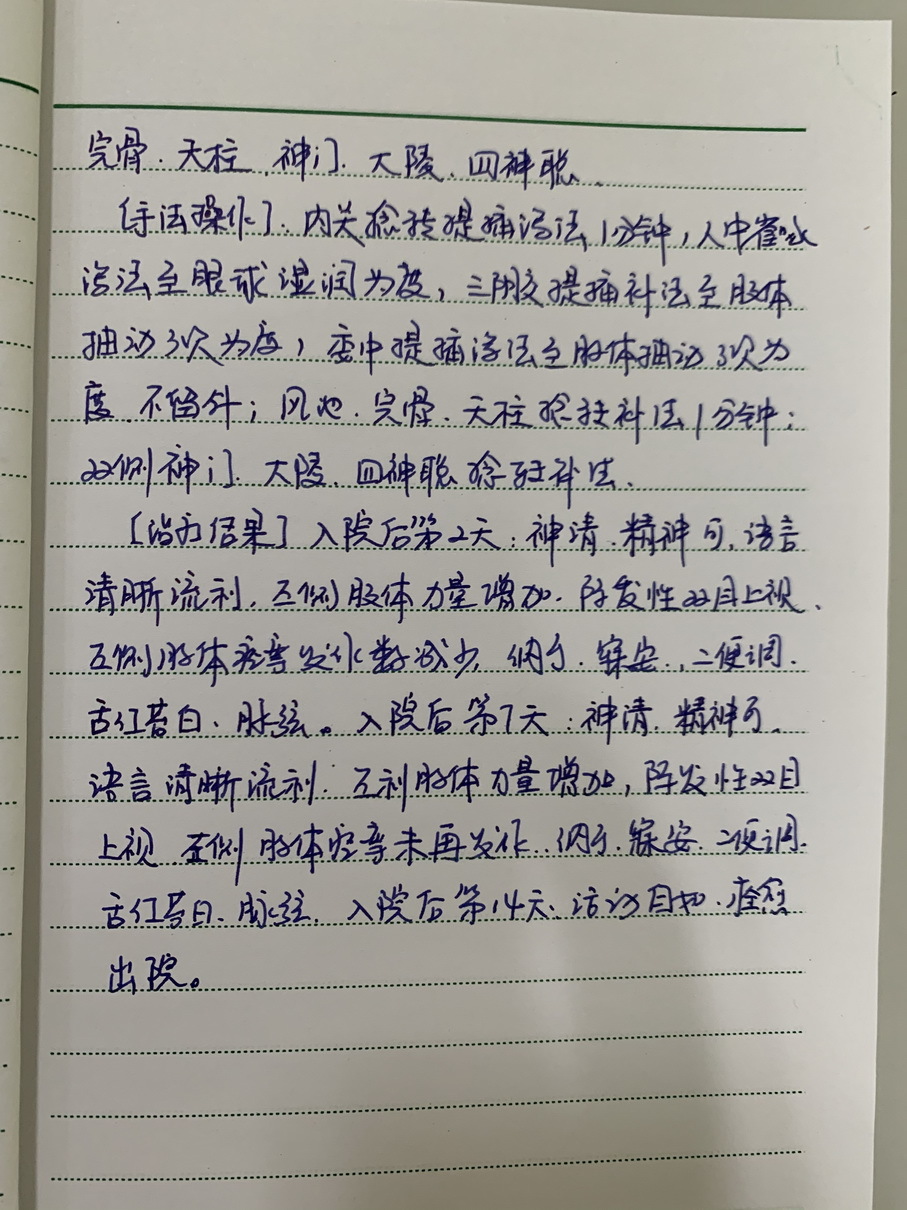 完骨、天柱、神门、大陵、四神聪、
〔手法操作〕、内关捻转提插泻法1分钟，人中雀啄
泻法至眼球湿润为度，三阴交提插补法至肢体
抽动3次为度，委中提插泻法至肢体抽动3次为
度、不留针；风池、完骨、天柱捻转补法1分钟；
双侧神门、大陵、四神聪捻转补法、
〔治疗结果〕入院后第2天：神清、精神可、语言
清晰流利、左侧肢体力量增加、阵发性双目上视、
左侧肢体痉挛发作数减少、纳可、寐安、二便调、
舌红苔白、脉弦。入院后第7天：神清、精神可、
语言清晰流利、左利肢体力量增加，阵发性双目
上视、左侧肢体痉挛未再发作、纳可、寐安、二便调、
舌红苔白、脉弦、入院后第14天、活动自如、痊愈
出院。